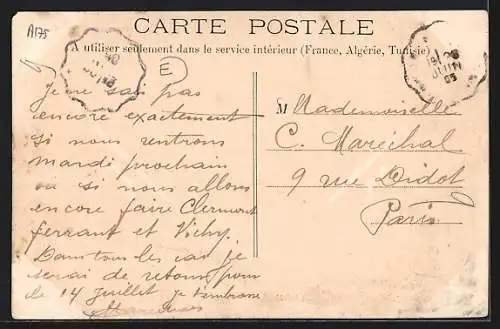 A175
CARTE POSTALE
A utiliser seulement dans le service intérieur (France, Algérie, Tunisie)
E
JUIN
Je ne sais pas
encore exactement
si nous rentrons
mardi prochain
ou si nous allons
encore faire Clermont
ferrant et Vichy.
Dans tous les cas je
serai de retour pour
le 14 juillet je t'embrasse
M Mademoiselle
C. Maréchal
9 rue Didot
Paris